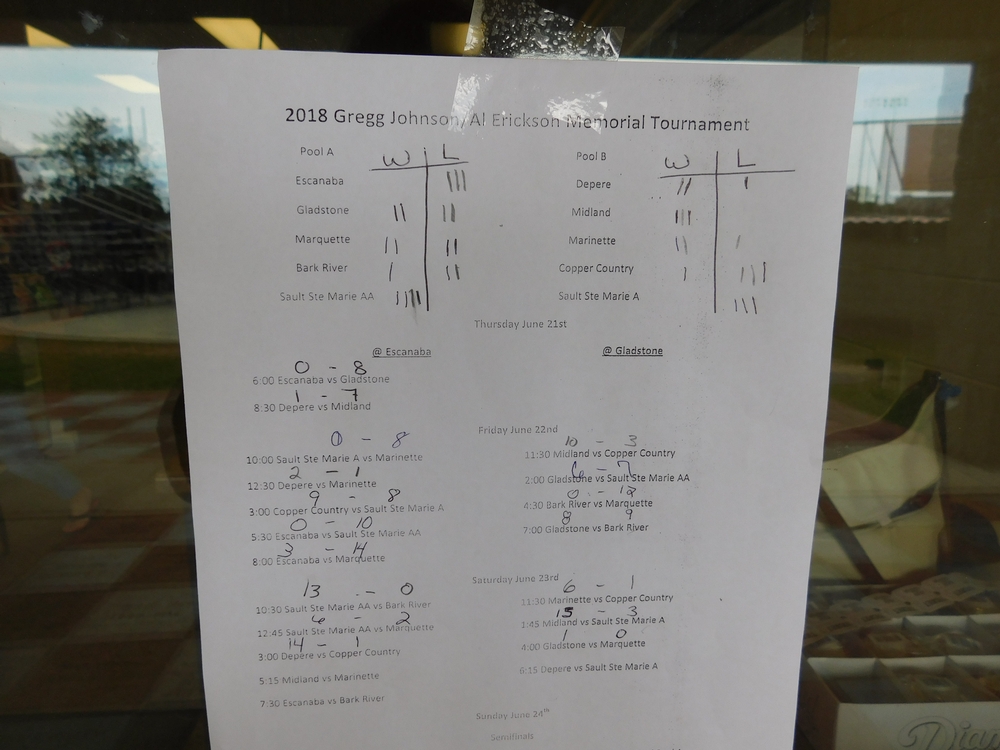 2018 Gregg Johnson/Al Erickson Memorial Tournament
Pool A W L Pool B W L
Escanaba III Depere II I
Gladstone II II Midland III
Marquette II II Marinette II I
Bark River I II Copper Country I III
Sault Ste Marie AA IIII Sault Ste Marie A III
Thursday June 21st
@ Escanaba @ Gladstone
0 - 8
6:00 Escanaba vs Gladstone
1 - 7
8:30 Depere vs Midland
Friday June 22nd
0 - 8
10:00 Sault Ste Marie A vs Marinette
2 - 1
12:30 Depere vs Marinette
9 - 8
3:00 Copper Country vs Sault Ste Marie A
0 - 10
5:30 Escanaba vs Sault Ste Marie AA
3 - 14
8:00 Escanaba vs Marquette
10 - 3
11:30 Midland vs Copper Country
6 - 7
2:00 Gladstone vs Sault Ste Marie AA
0 -
4:30 Bark River vs Marquette
8 9
7:00 Gladstone vs Bark River
Saturday June 23rd
13 - 0
10:30 Sault Ste Marie AA vs Bark River
6 - 2
12:45 Sault Ste Marie AA vs Marquette
14 - 1
3:00 Depere vs Copper Country
5:15 Midland vs Marinette
7:30 Escanaba vs Bark River
6 - 1
11:30 Marinette vs Copper Country
15 - 3
1:45 Midland vs Sault Ste Marie A
1 0
4:00 Gladstone vs Marquette
6:15 Depere vs Sault Ste Marie A
Sunday June 24th
Semifinals